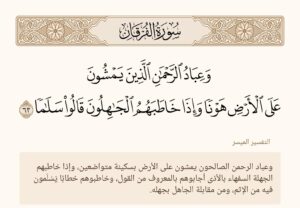 سُورَةُ الفُرْقَانِ
وَعِبَادُ ٱلرَّحْمَٰنِ ٱلَّذِينَ يَمْشُونَ
عَلَى ٱلْأَرْضِ هَوْنًا وَإِذَا خَاطَبَهُمُ ٱلْجَٰهِلُونَ قَالُوا۟ سَلَٰمًا ٦٣
التفسير الميسر
وعباد الرحمن الصالحون يمشون على الأرض بسكينة متواضعين، وإذا خاطبهم
الجهلة السفهاء بالأذى أجابوهم بالمعروف من القول، وخاطبوهم خطابًا يَسْلَمون
فيه من الإثم، ومن مقابلة الجاهل بجهله.